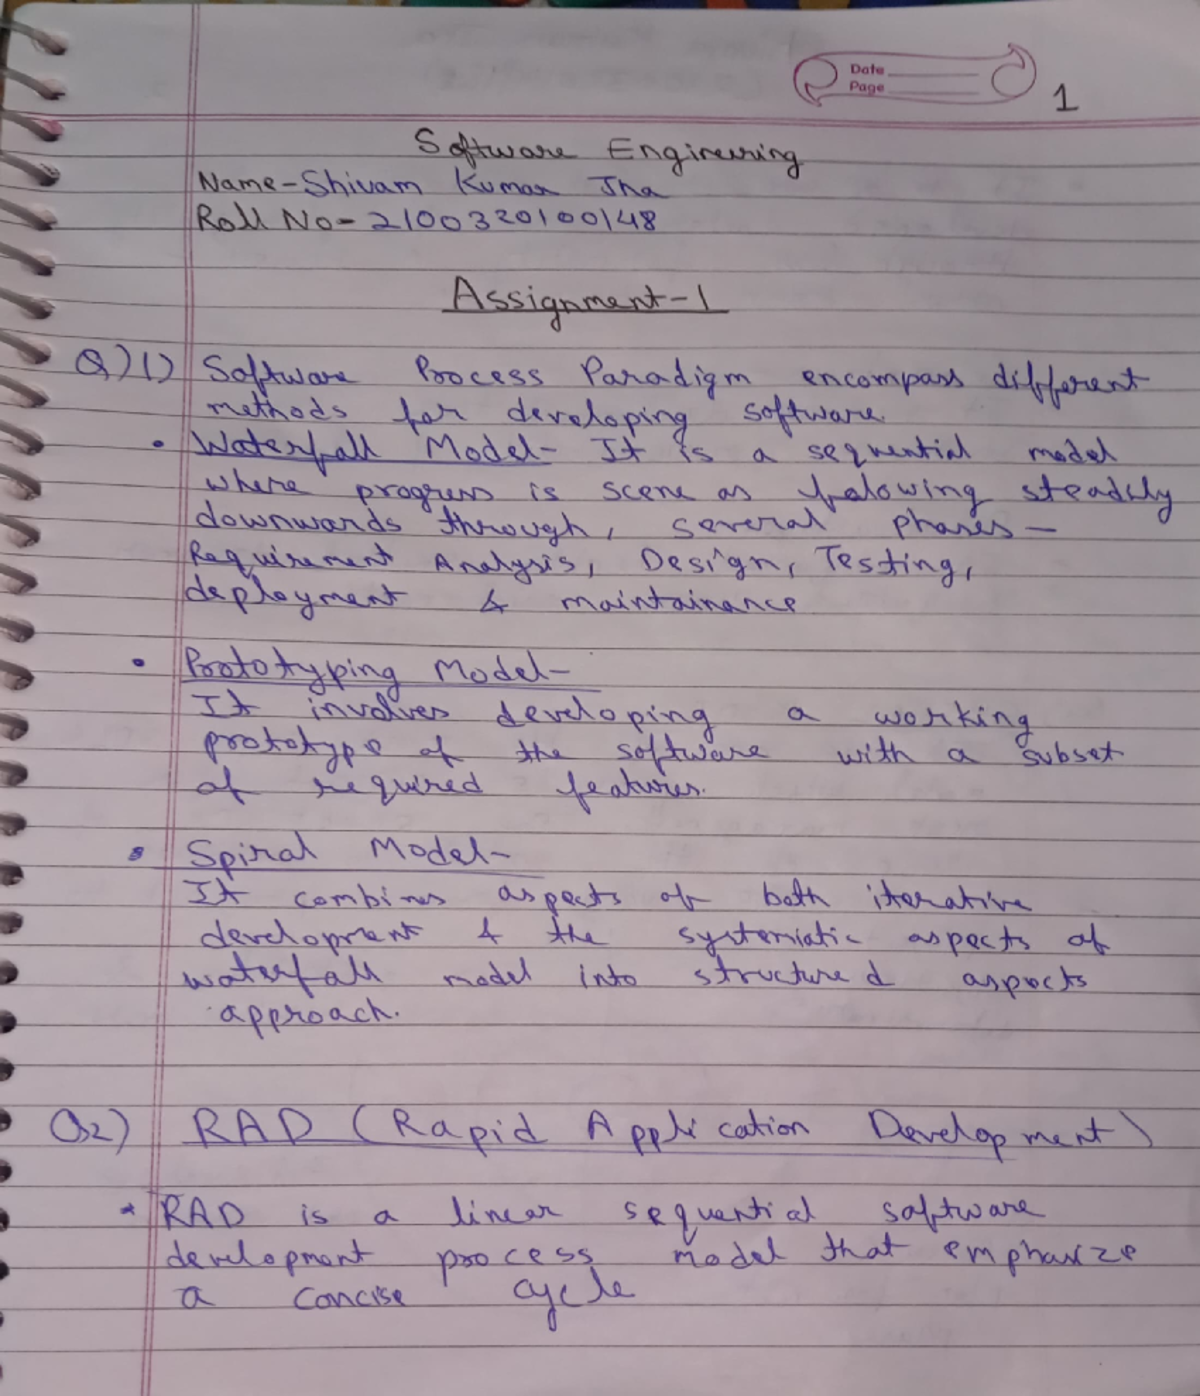 Date
Page
1
Software Engineering
Name-Shivam Kumar Jha
Roll No- 2100320100148
Assignment-1
Q)1) Software Process Paradigm encompass different
methods for developing software.
• Waterfall Model- It is a sequential model
where progress is scene as folowing steadily
downwards through, several phases-
Requirement Analysis, Design, Testing,
deployment & maintainance
• Prototyping Model-
It involves developing a working
prototype of the software with a subset
of required features.
• Spiral Model-
It combines aspects of both iterative
development & the systematic aspects of
waterfall model into structured aspects
approach.
Q2) RAD (Rapid Application Development)
* RAD is a linear sequential software
development process model that emphasize
a concise cycle